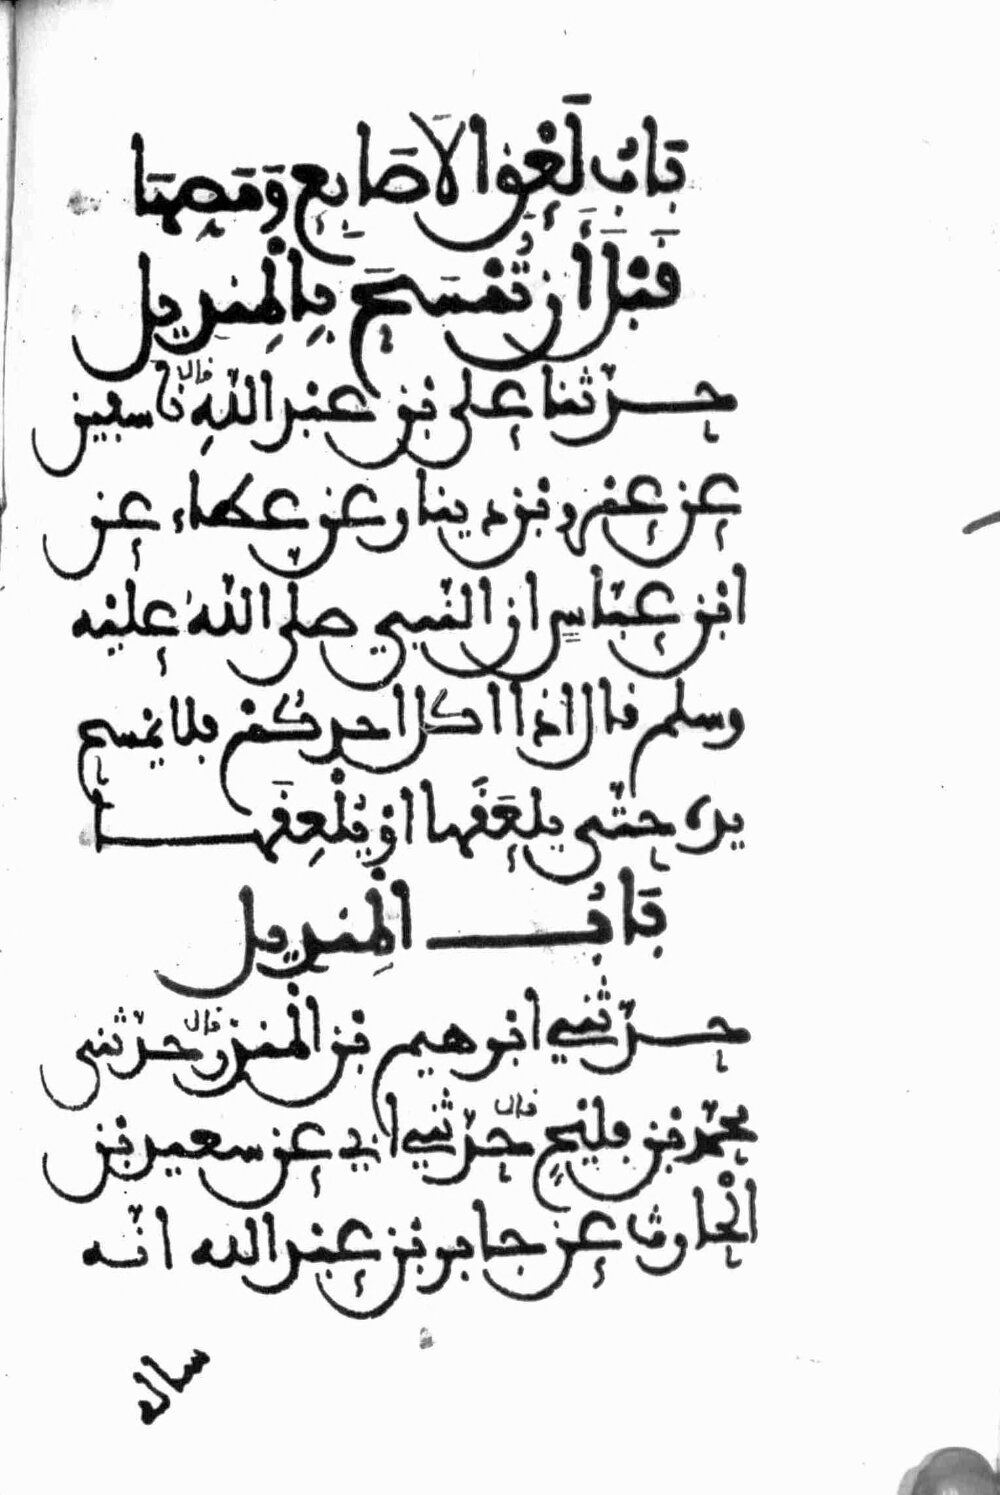 بَابُ لَعْقِ الْأَصَابِعِ وَمَصِّهَا
قَبْلَ أَنْ تُمْسَحَ بِالْمِنْدِيلِ
حدّثنا علي بن عبد اللهِ قال نا سفين
عن عمرو بن دينار عن عطاء عن
ابن عبّاس ان النّبي صلى اللهُ عليه
وسلم قال اذا اكل احدكُمْ فلا يمسح
يده حتّى يلعَقَها اوْ يُلْعِقَهَا
بَابُ الْمِنْدِيل
حدّثني ابرهيم بن الْمنذر قال حدّثني
محمّد بن فليح قال حدّثني ابي عن سعيد بن
الْحارث عن جابر بن عبد الله انّه
ساله